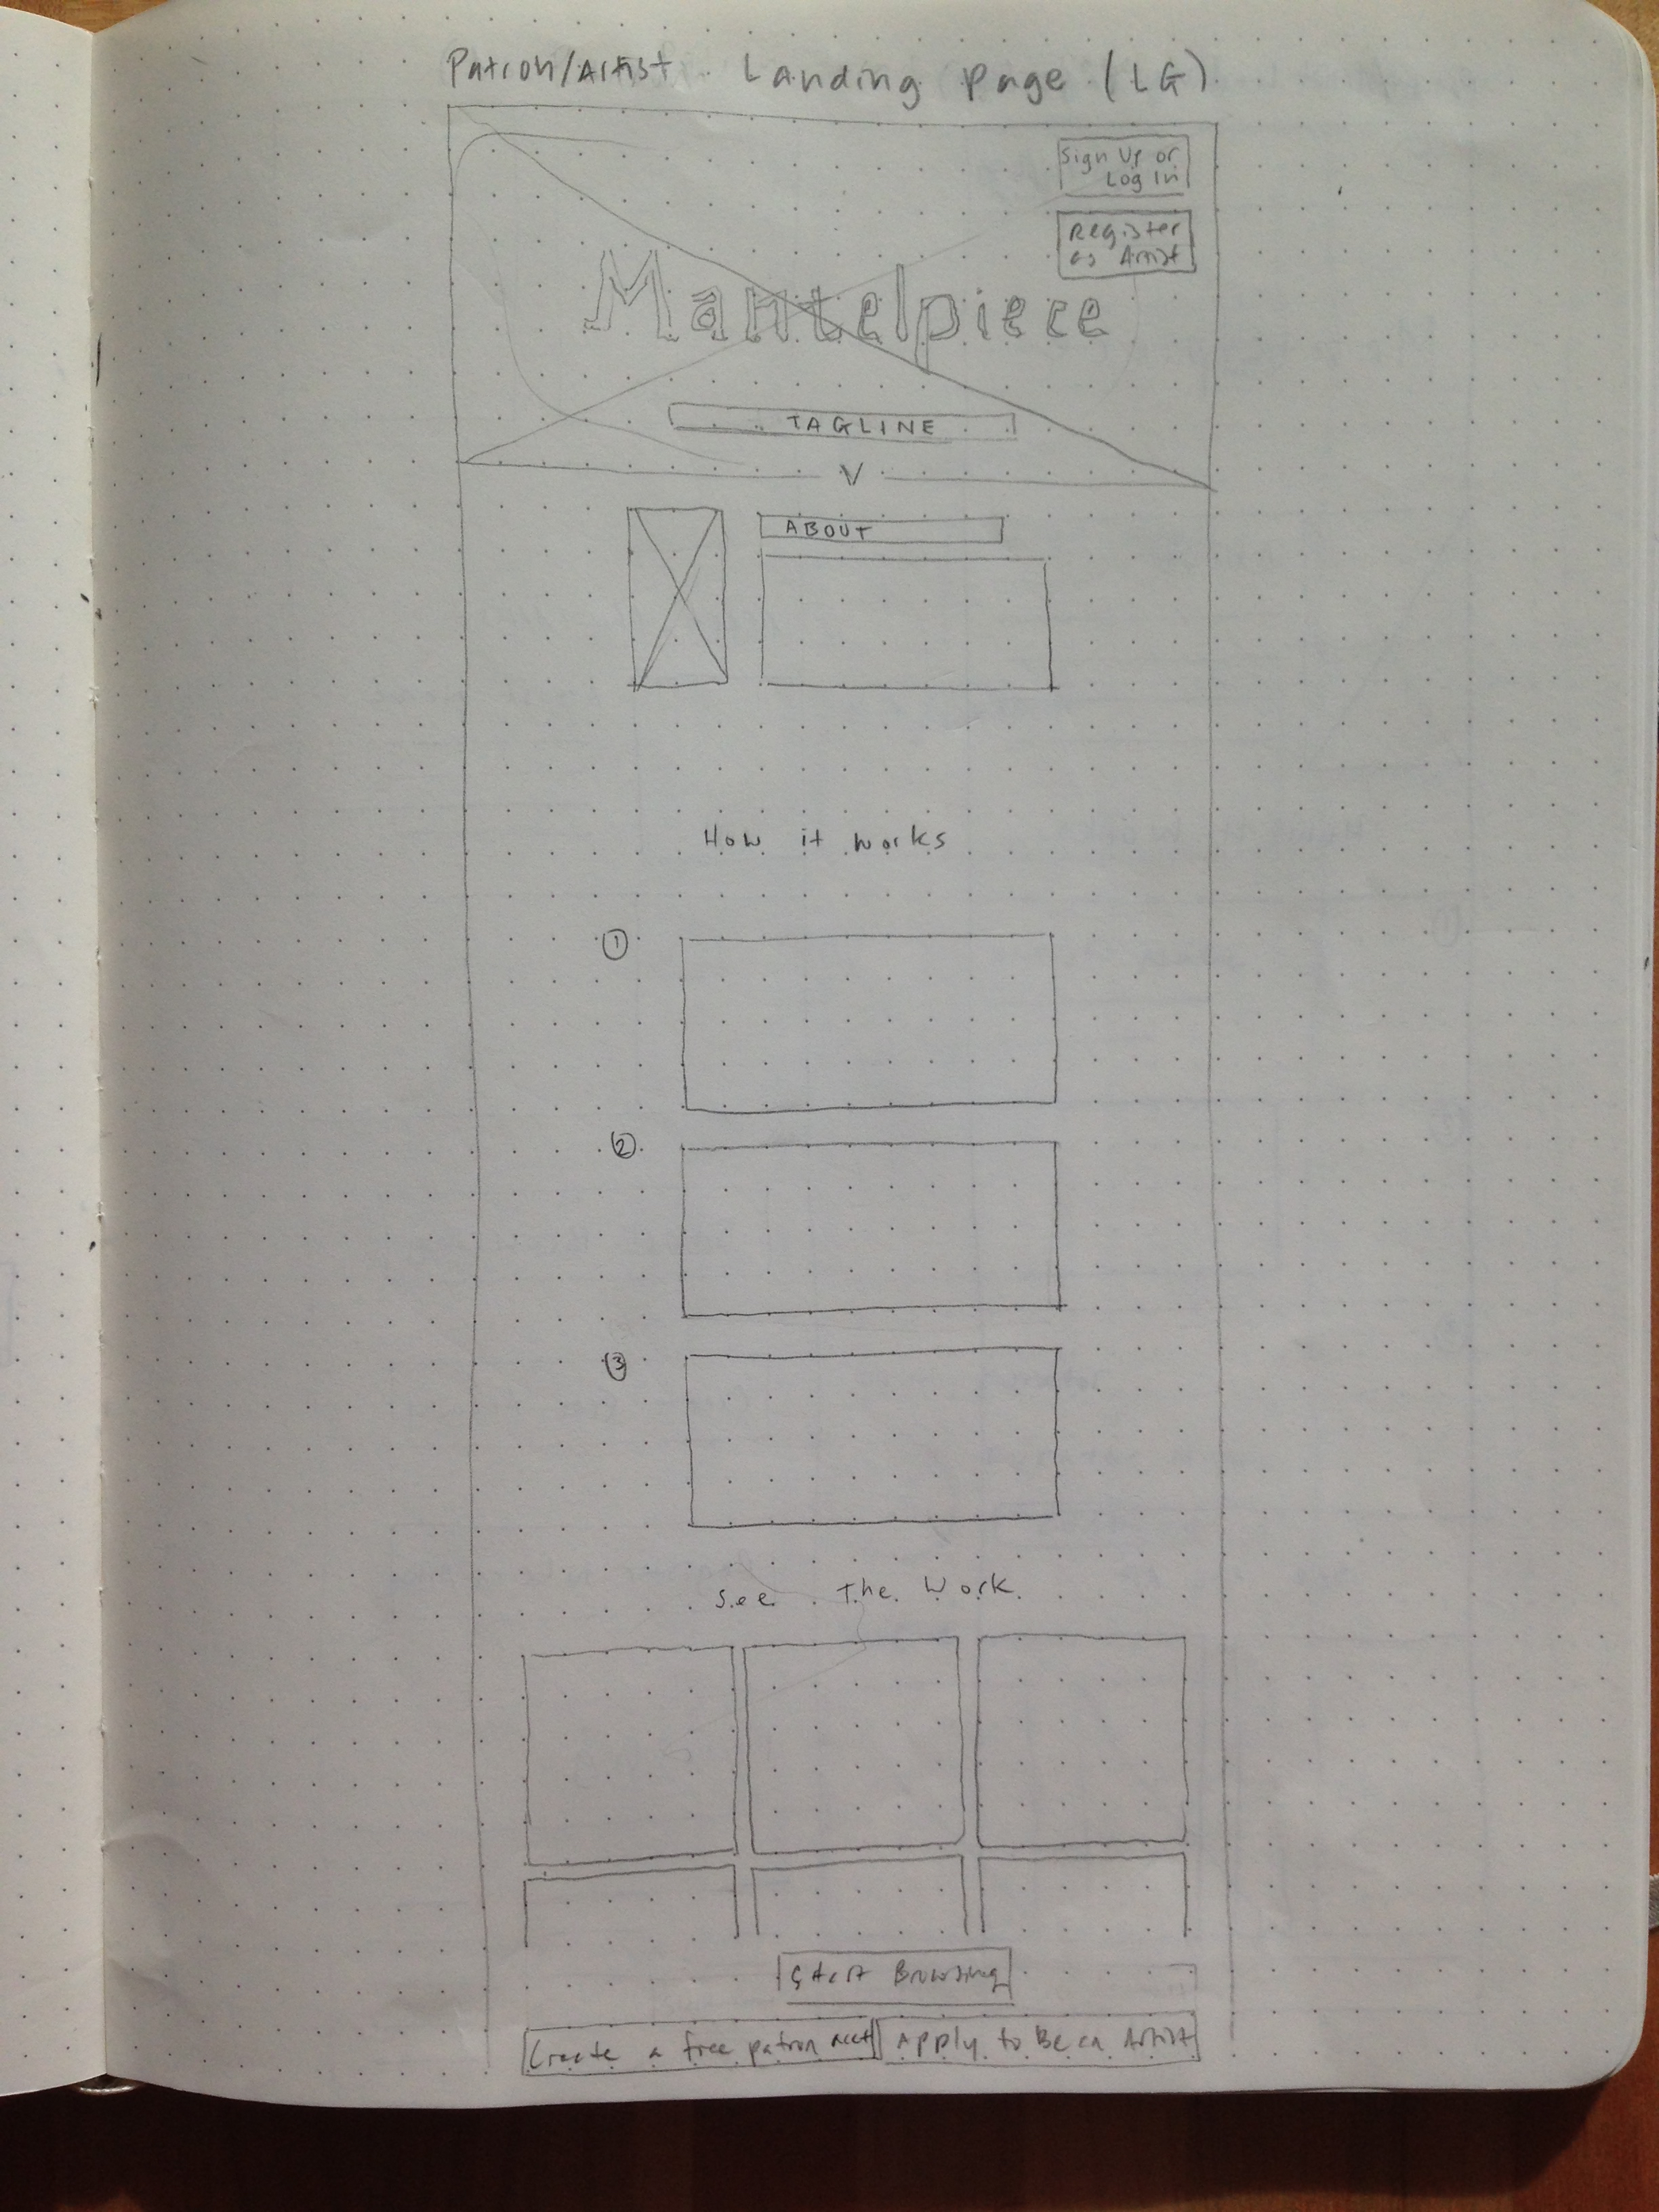 Patron/Artist Landing Page (LG)
Sign Up or
Log In
Register
as Artist
Mantelpiece
TAGLINE
V
ABOUT
How it works
1
2
3
See The Work
Start Browsing
Create a free patron acct
Apply to Be an Artist